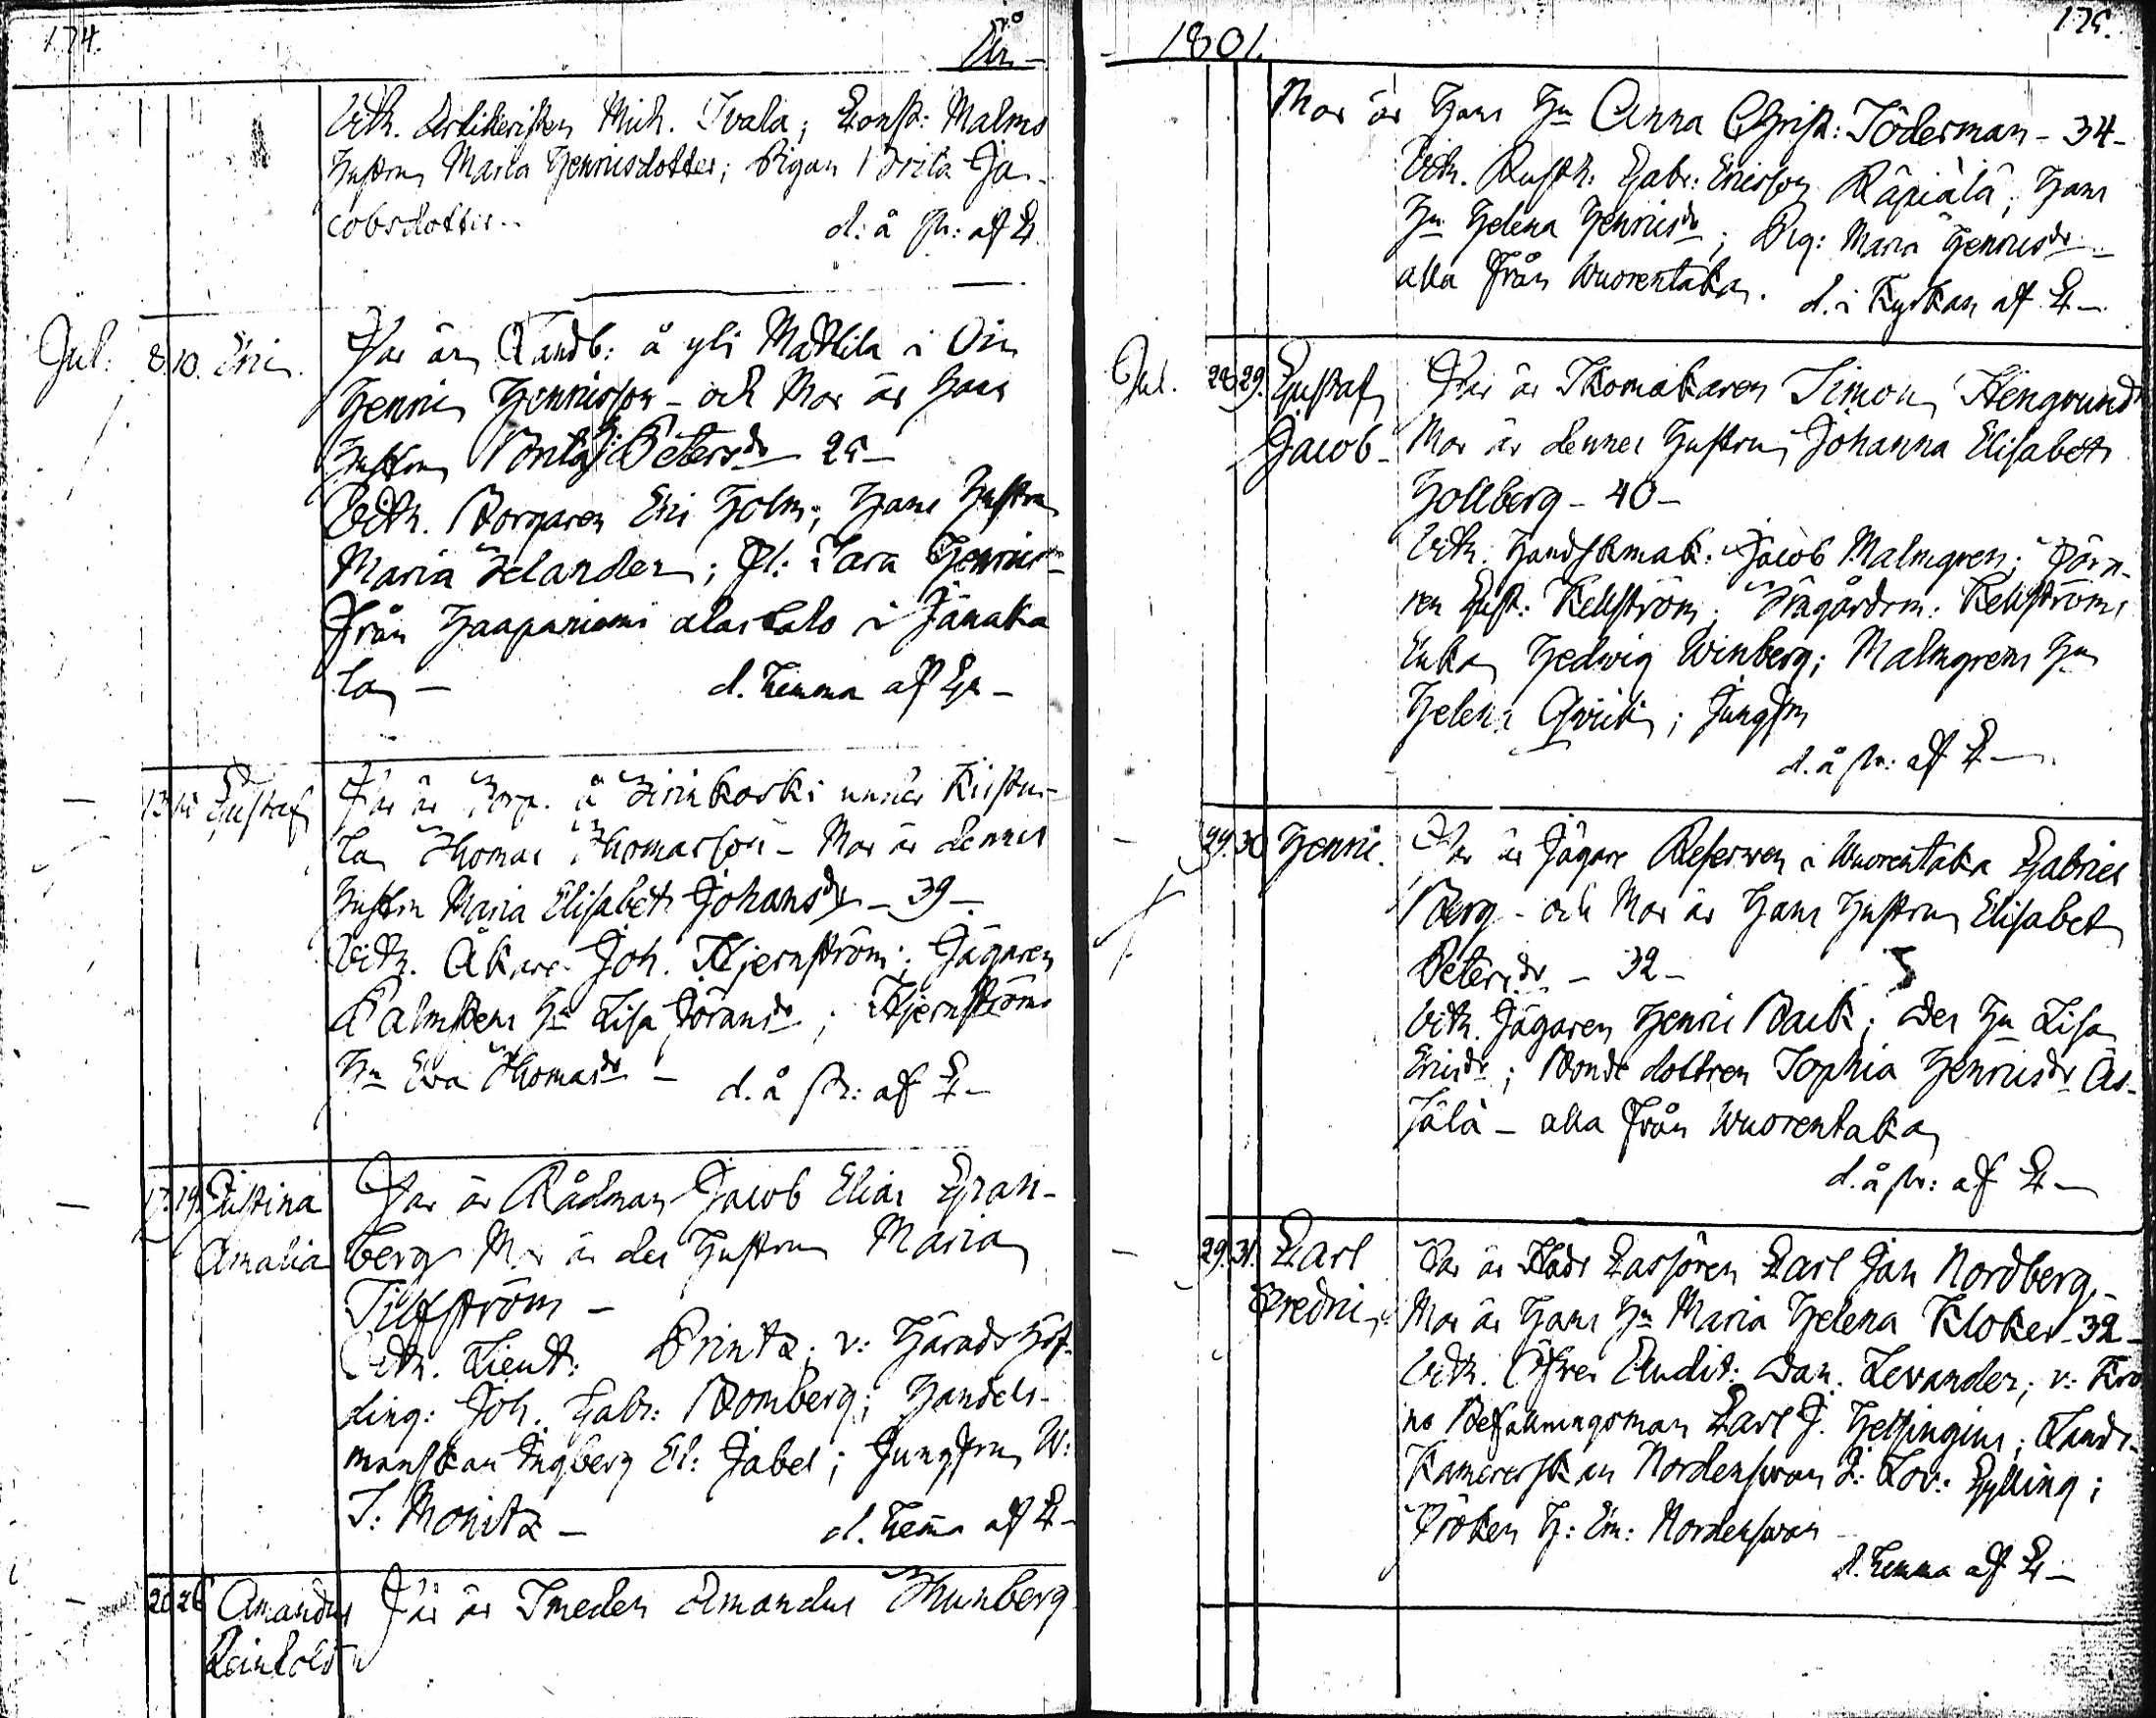 174.
År
Vitt. Artilleristen Mich. Ivala; Const: Malms
hustru Maria Henricsdotter; Pigan Brita Ja-
cobsdotter..
d: å st: af C.
Jul: 8. 10. Eric.
Far är Landb: å yli Mattila i Oin
Henric Henricsson - och Mor är hans
hustru Brita Petersdr 25 -
Vitt. Borgaren Eric Holm; hans hustru
Maria Helander; Pl: Sara Henrics-
från Haapaniemi alastalo i Janaka
la -
d. hemma af Gr -
13. 15 Gustaf
Far är Torp. å Hirsikoski under Kirstu-
la Thomas Thomasson - Mor är dennes
hustru Maria Elisabeth Johansdr - 39 -
Vitt. Åkare Joh. Stjernström; Jägaren
Palmstens Hu Lisa Göransdr; Stjernströms
Hu Eva Thomasdr -
d. å st: af C -
17. 19. Justina
Amalia
Far är Rådman Jacob Elias Gran-
berg Mor är des hustru Maria
Silfström -
Vitt. Lieut: Printz; v: Häradshöf-
ding: Joh. Gabr: Bomberg; Handels-
manskan Ingberg El: Jabel; Jungfru W:
S: Monitz -
d. hemma af C -
20 26 Amandus
Reinhold
Far är Smeden Amandus Thunberg
1801.
175.
Mor är hans Hu Anna Christ: Söderman - 34 -
Vitt. Rusth: Gabr: Ericsson Räpiälä; hans
Hu Helena Henricsdr; Pig: Maria Henricsdr
alla från Wuorentaka.
d. i Kyrkan af C -
Jul. 28 29. Gustaf
Jacob -
Far är Skomakaren Simon Stengrund
Mor är dennes hustru Johanna Elisabeth
Hollberg - 40 -
Vitt. Handskmak: Jacob Malmgren;
Gust: Kellström; Trägårdsm: Kellströms
Enka Hedwig Winberg; Malmgrens Hu
Helena Qvick; Jungfru
d. å st: af C -
29. 30 Henric.
Far är Jägare Reserven i Wuorentaka Gabriel
Berg - och Mor är hans hustru Elisabet
Petersdr - 32 -
Vitt. Jägaren Henric Back; des Hu Lisa
Ericsdr; Bonde dottren Sophia Henricsdr As-
sälä - alla från Wuorentaka
d. å st: af C -
29. 31. Carl
Fredric,
Far är Stads Cassören Carl Jan Nordberg -
Mor är hans Hu Maria Helena Kloker - 32 -
Vitt. Öfver Audit: Dan. Levander; v: Kro
no Befallningsman Carl J. Helsingius; Lands-
Kamererskan Nordenswan d: Lov: Gylling;
Fröken H: Em: Nordenswan
d. hemma af C -